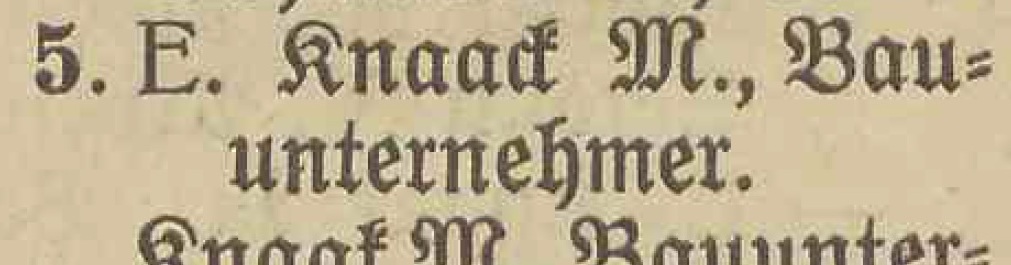 5. E. Knaack M., Bau⸗
unternehmer.
Knaak M., Bauunter⸗